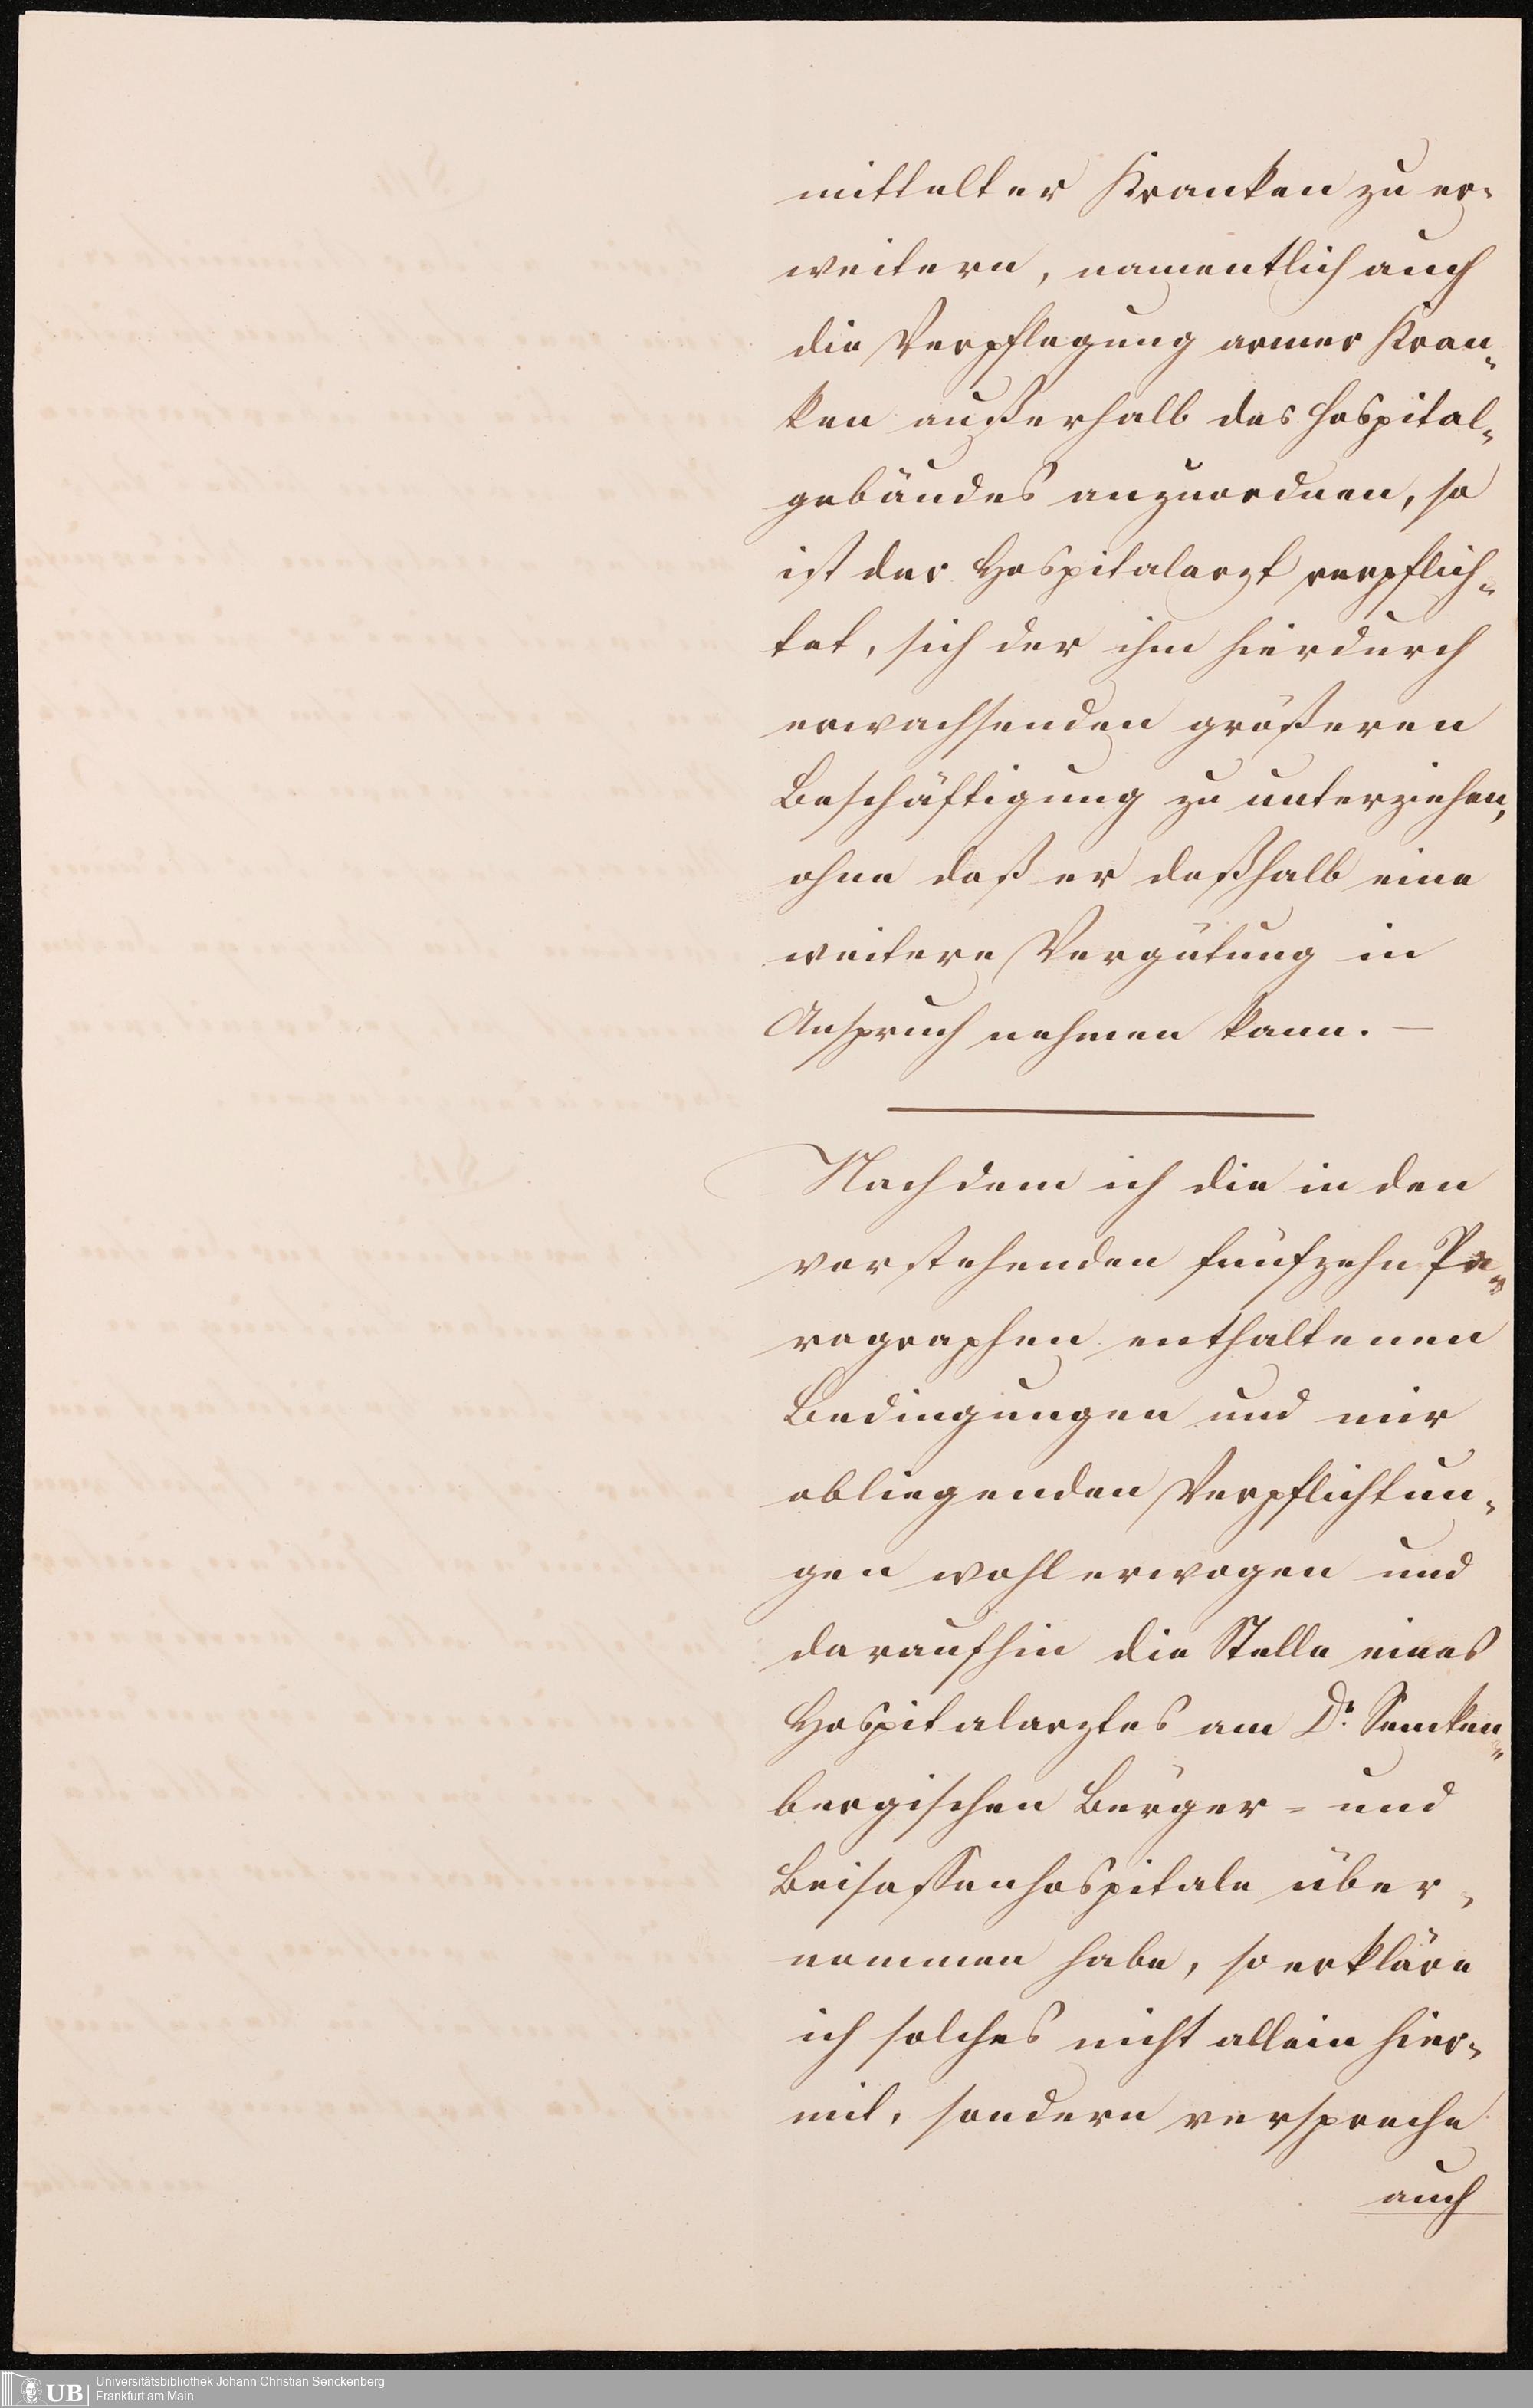 mittelter Kranken zu er-
weitern, namentlich auch
die Verpflegung armer Kran-
ken außerhalb des Hospital-
gebäudes anzuordnen, so
ist der Hospitalarzt verpflich-
tet, sich der ihm hierdurch
erwachsenden größeren
Beschäftigung zu unterziehen,
ohne daß er deßhalb eine
weitere Vergütung in
Anspruch nehmen kann. —
Nachdem ich die in den
vorstehenden fünfzehn Pa-
ragraphen enthaltenen
Bedingungen und mir
obliegenden Verpflichtun-
gen wohl erwogen und
daraufhin die Stelle eines
Hospitalarztes am Dr. Sencken-
bergischen Bürger- und
Beisassenhospitale über-
nommen habe, so erkläre
ich solches nicht allein hier-
mit, sondern verspreche
auch
UB
Universitätsbibliothek Johann Christian Senckenberg
Frankfurt am Main